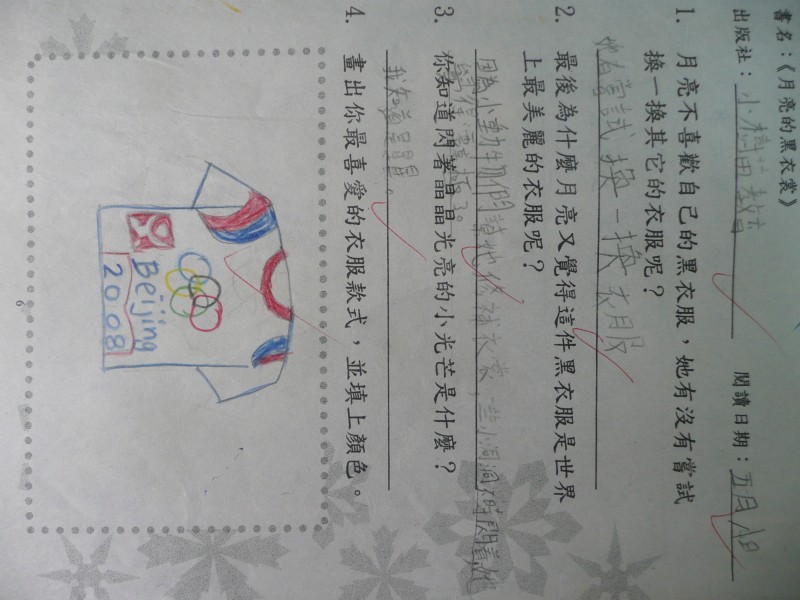 書名：《月亮的黑衣裳》
出版社：小樹苗教
閱讀日期：五月
1. 月亮不喜歡自己的黑衣服，她有沒有嘗試
換一換其它的衣服呢？
她有嘗試換一換衣服
2. 最後為什麼月亮又覺得這件黑衣服是世界
上最美麗的衣服呢？
因為小動物們請他修補衣裳，一些小洞洞
3. 你知道閃著晶晶光亮的小光芒是什麼？
我知道是星星。
4. 畫出你最喜愛的衣服款式，並填上顏色。
Beijing
2008
6